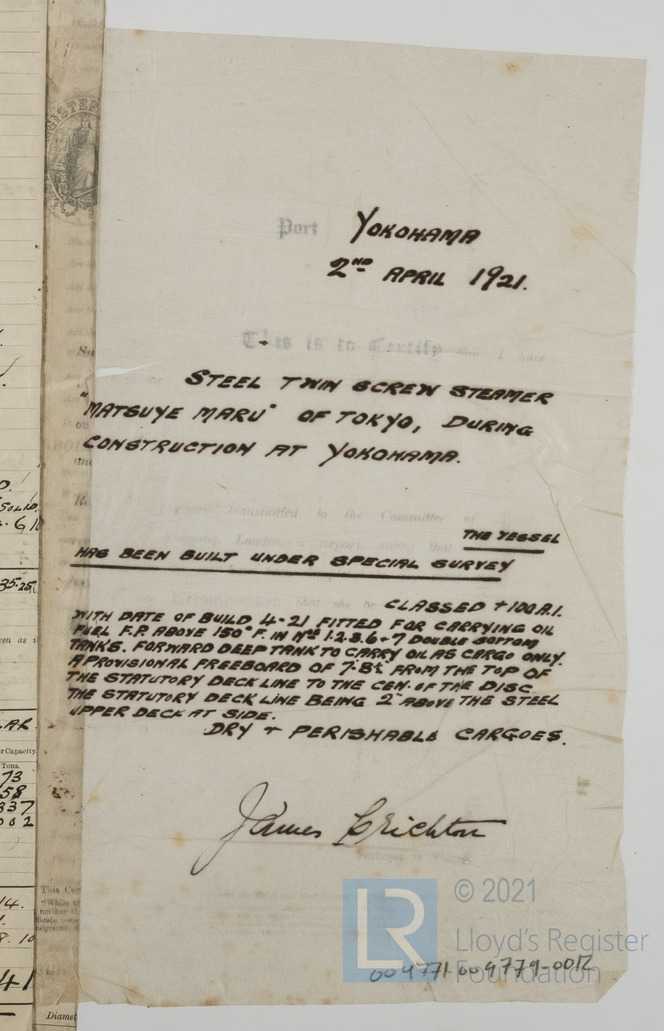 Port YOKOHAMA
2ND APRIL 1921.
This is to Certify that I have
STEEL TWIN SCREW STEAMER
"MATSUYE MARU" OF TOKYO, DURING
CONSTRUCTION AT YOKOHAMA.
transmitted to the Committee of
THE VESSEL
HAS BEEN BUILT UNDER SPECIAL SURVEY
that she be
CLASSED + 100 A.1.
WITH DATE OF BUILD 4-21 FITTED FOR CARRYING OIL
FUEL F.P. ABOVE 150° F. IN Nos 1.2.3.6 + 7 DOUBLE BOTTOM
TANKS. FORWARD DEEP TANK TO CARRY OIL AS CARGO ONLY.
A PROVISIONAL FREEBOARD OF FROM THE TOP OF
THE STATUTORY DECK LINE TO THE CEN. OF THE DISC
THE STATUTORY DECK LINE BEING 2" ABOVE THE STEEL
UPPER DECK AT SIDE.
DRY + PERISHABLE CARGOES.
James Crichton
LR
© 2021
Lloyd's Register
Foundation
004771-004779-0012
SOLID.
35.25
r Capacity.
Tons.
73
58
337
002
14.
8. 10
41
This Cer
"While th
Diamet